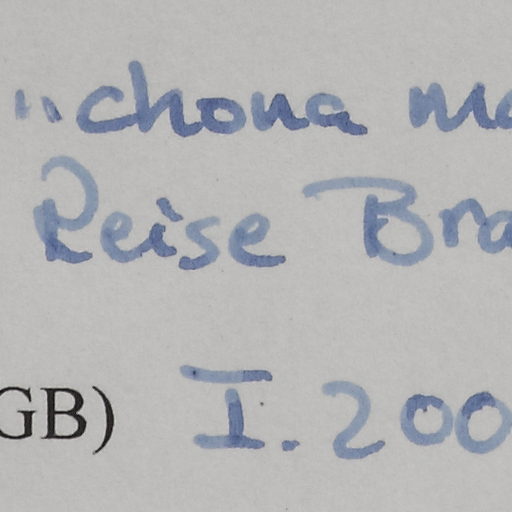 "chona ma
Reise Bra
GB) I.200